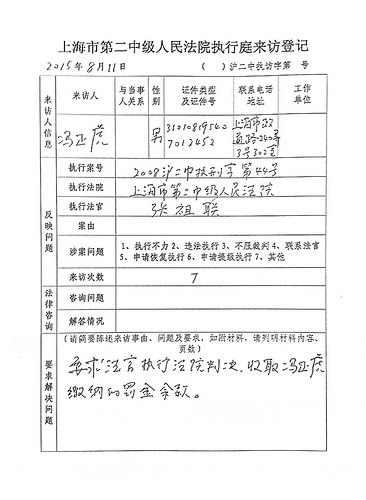 上海市第二中级人民法院执行庭来访登记
2015年8月11日 ( )沪二中执访字第 号
来访人信息
来访人 与当事人关系 性别 证件类型及证件号 联系电话地址 工作单位
冯正虎 男 3101081954 07012452 上海市政 3号302室
反映问题
执行案号 2008沪二中执刑字第44号
执行法院 上海市第二中级人民法院
执行法官 张祖联
案由
涉案问题 1、执行不力 2、违法执行 3、不服裁判 4、联系法官
5、申请恢复执行 6、申请提级执行 7、其他
来访次数 7
法律咨询
咨询问题
解答情况
要求解决问题
(请简要陈述来访事由、问题及要求,如附材料,请列明材料内容、
页数)
要求法官执行法院判决,收取冯正虎
缴纳的罚金余款。